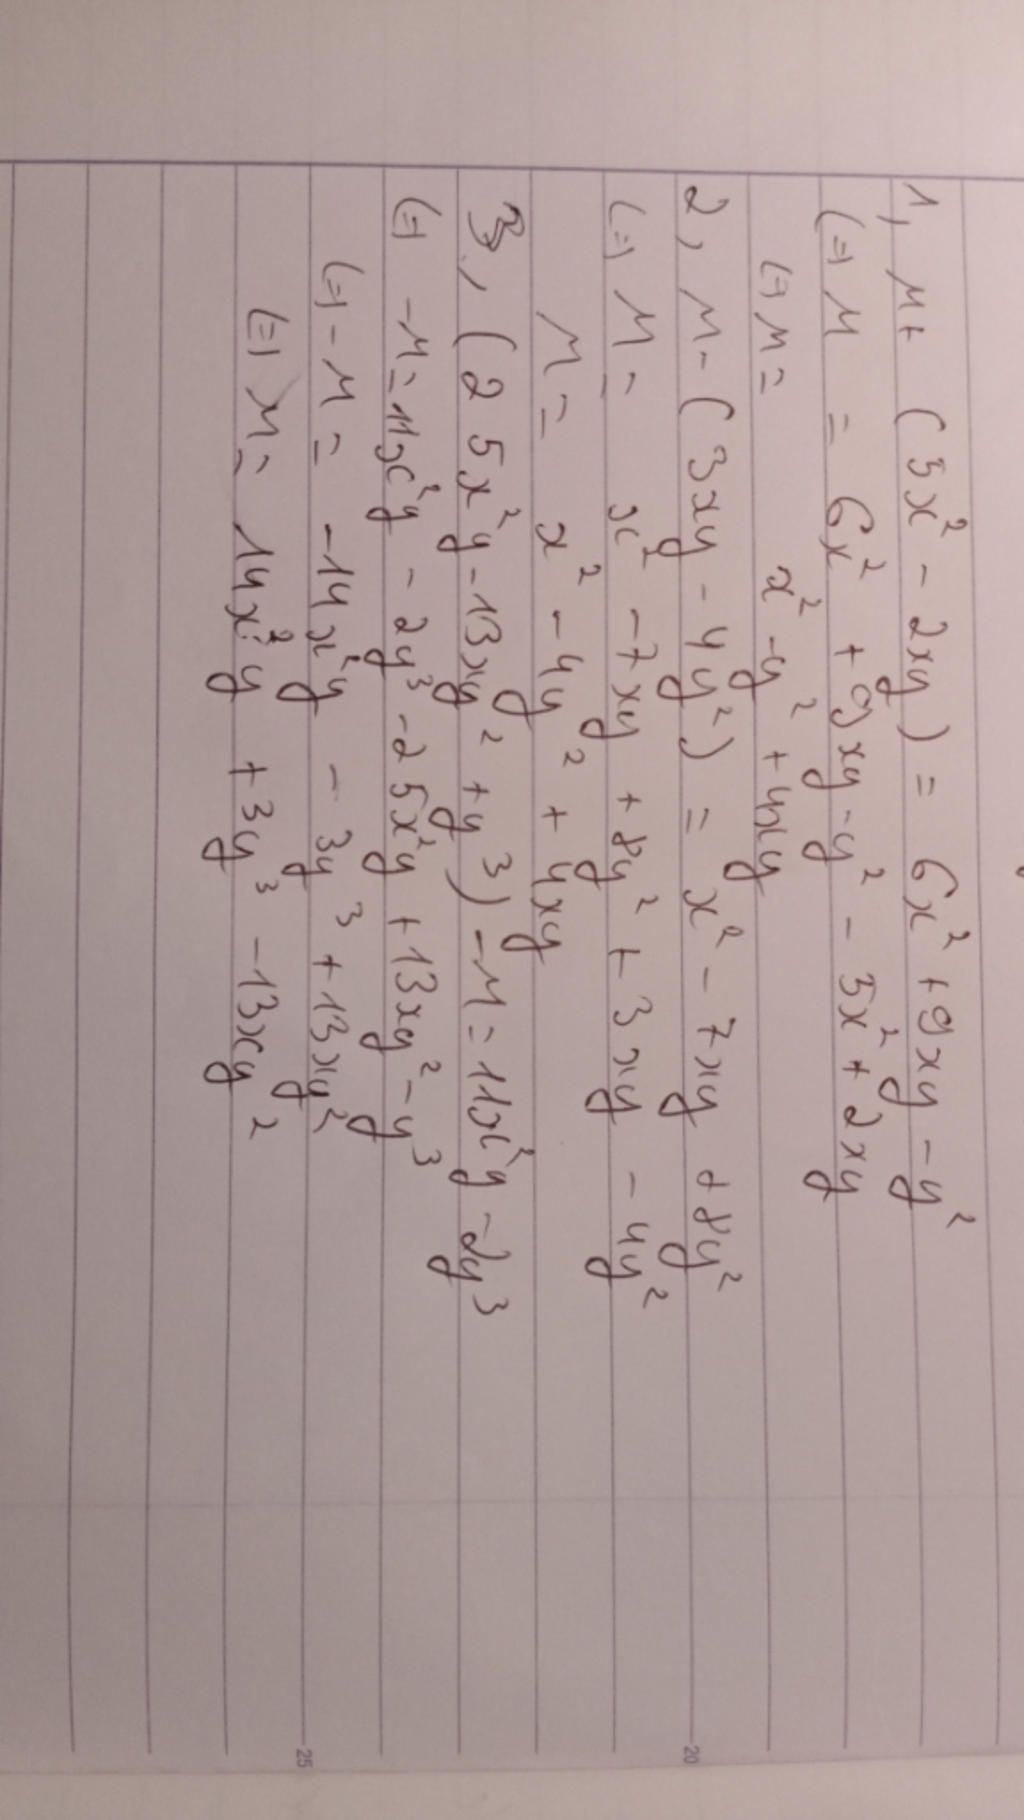 1, M + (5x² - 2xy) = 6x² + 9xy - y²
(=) M = 6x² + 9xy - y² - 5x² + 2xy
(=) M = x² - y² + 4xy
2, M - (3xy - 4y²) = x² - 7xy + 8y²
(=) M = x² - 7xy + 8y² + 3xy - 4y²
M = x² - 4y² + 4xy
3, (25x²y - 13xy² + y³) - M = 11x²y - 2y³
(=) - M = 11x²y - 2y³ - 25x²y + 13xy² - y³
(=) - M = -14x²y - 3y³ + 13xy²
(=) M = 14x²y + 3y³ - 13xy²
20
25